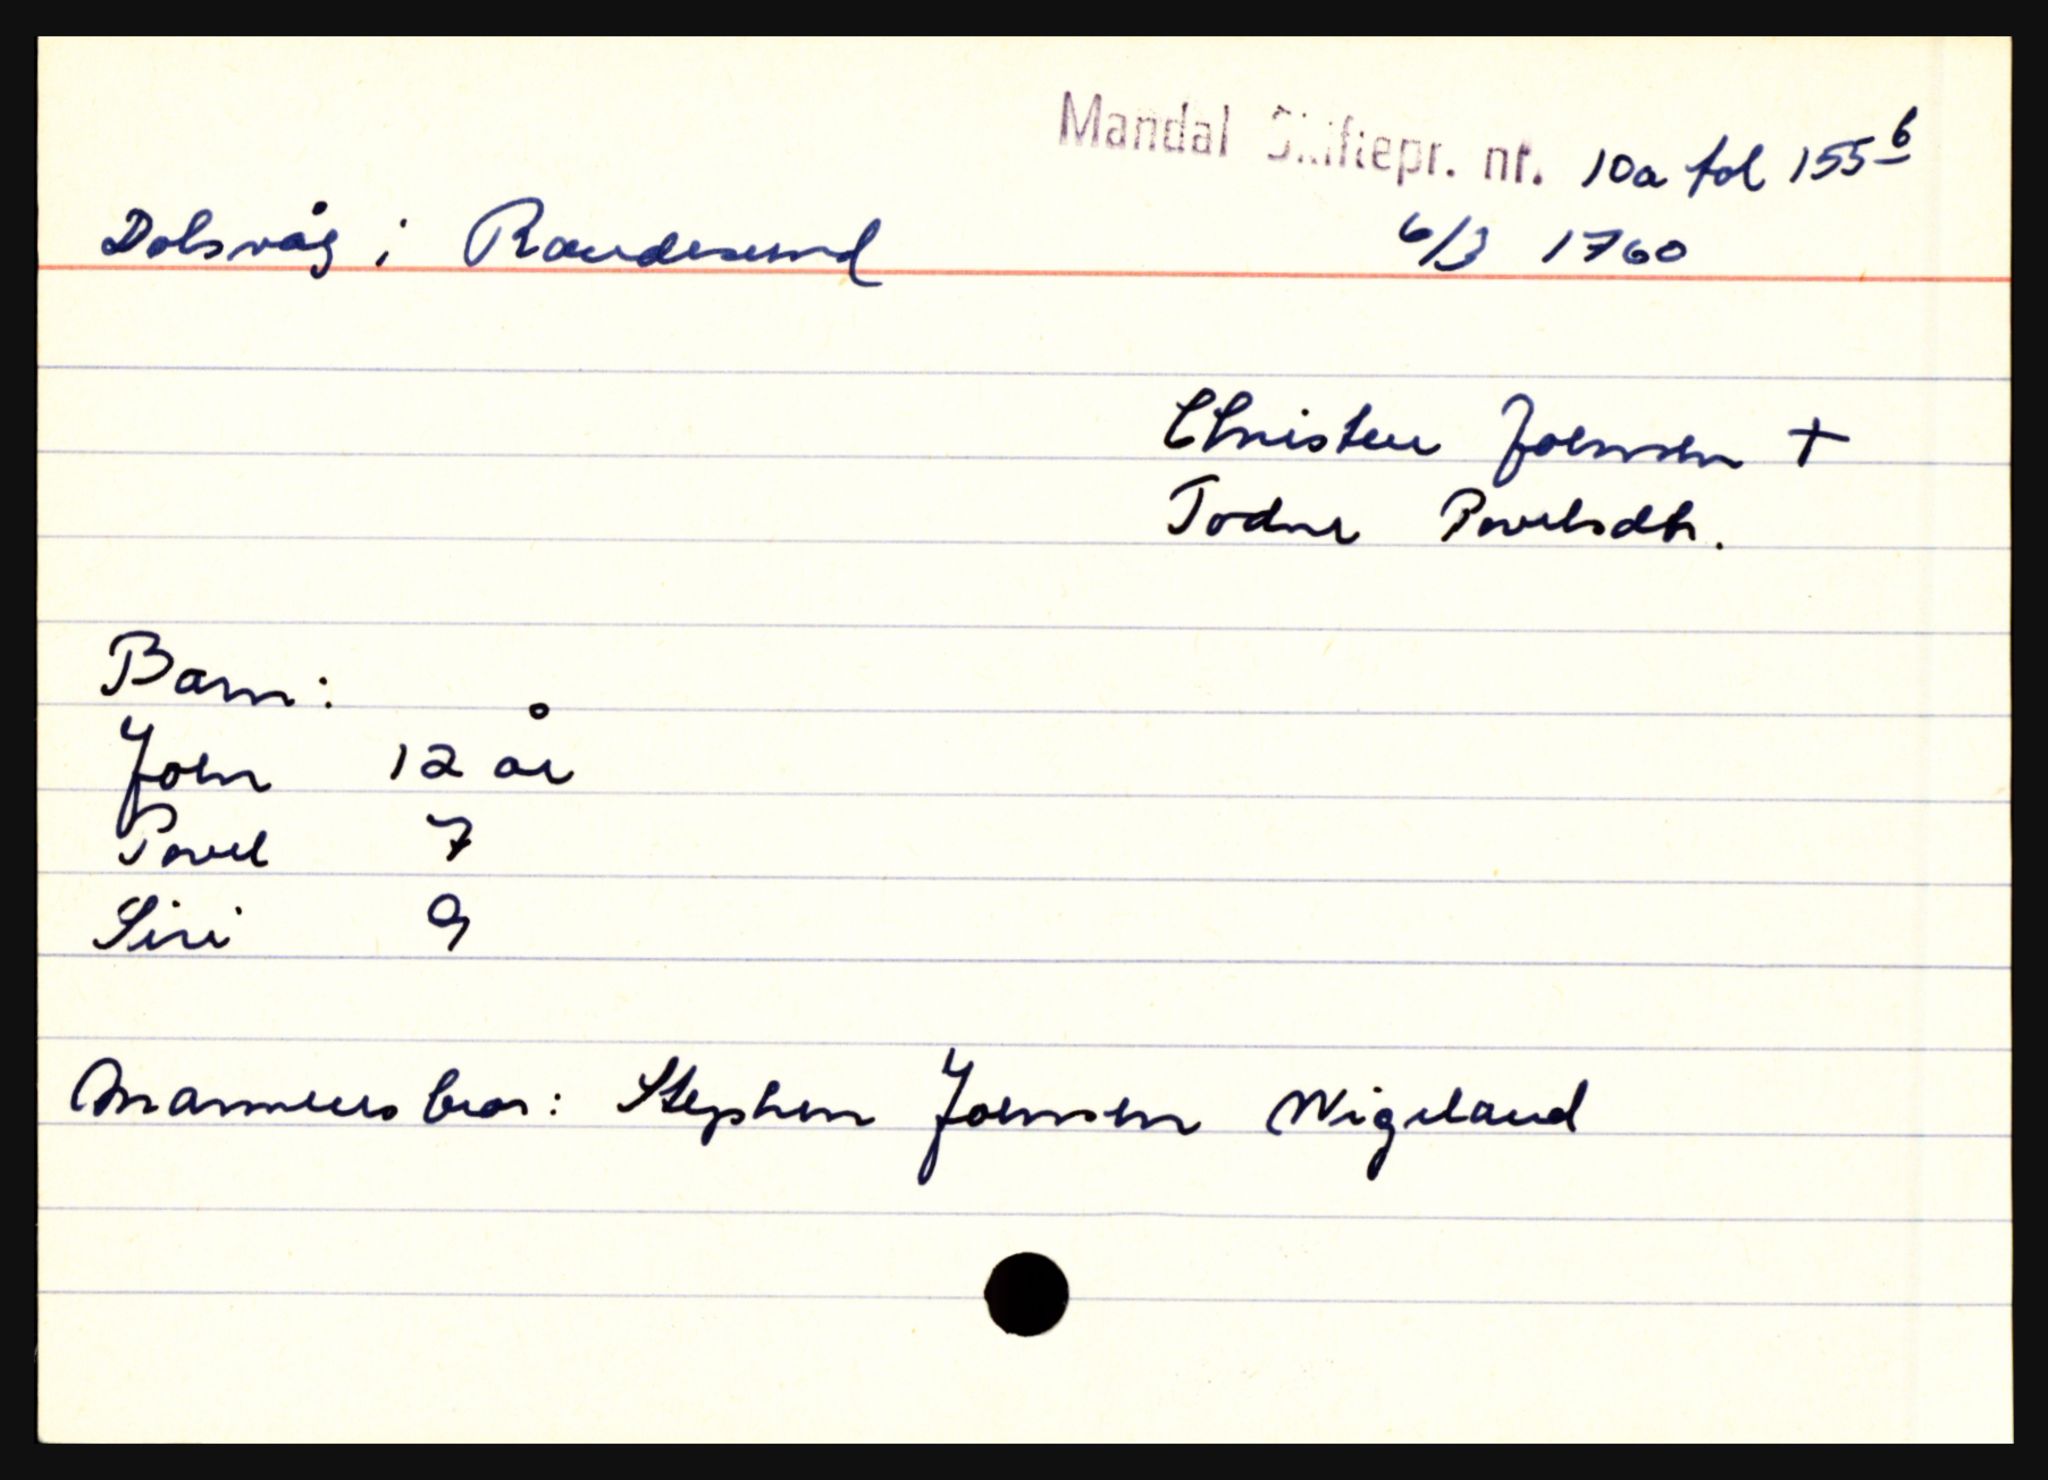 Mandal Skiftepr. nr. 10a fol 155b
Dolsvåg i Randesund 6/3 1760
Christen Joensen +
Todne Povelsdtr.
Barn:
Joen 12 år
Povel 7
Siri 9
Mannens bror: Stephen Joensen Wigeland